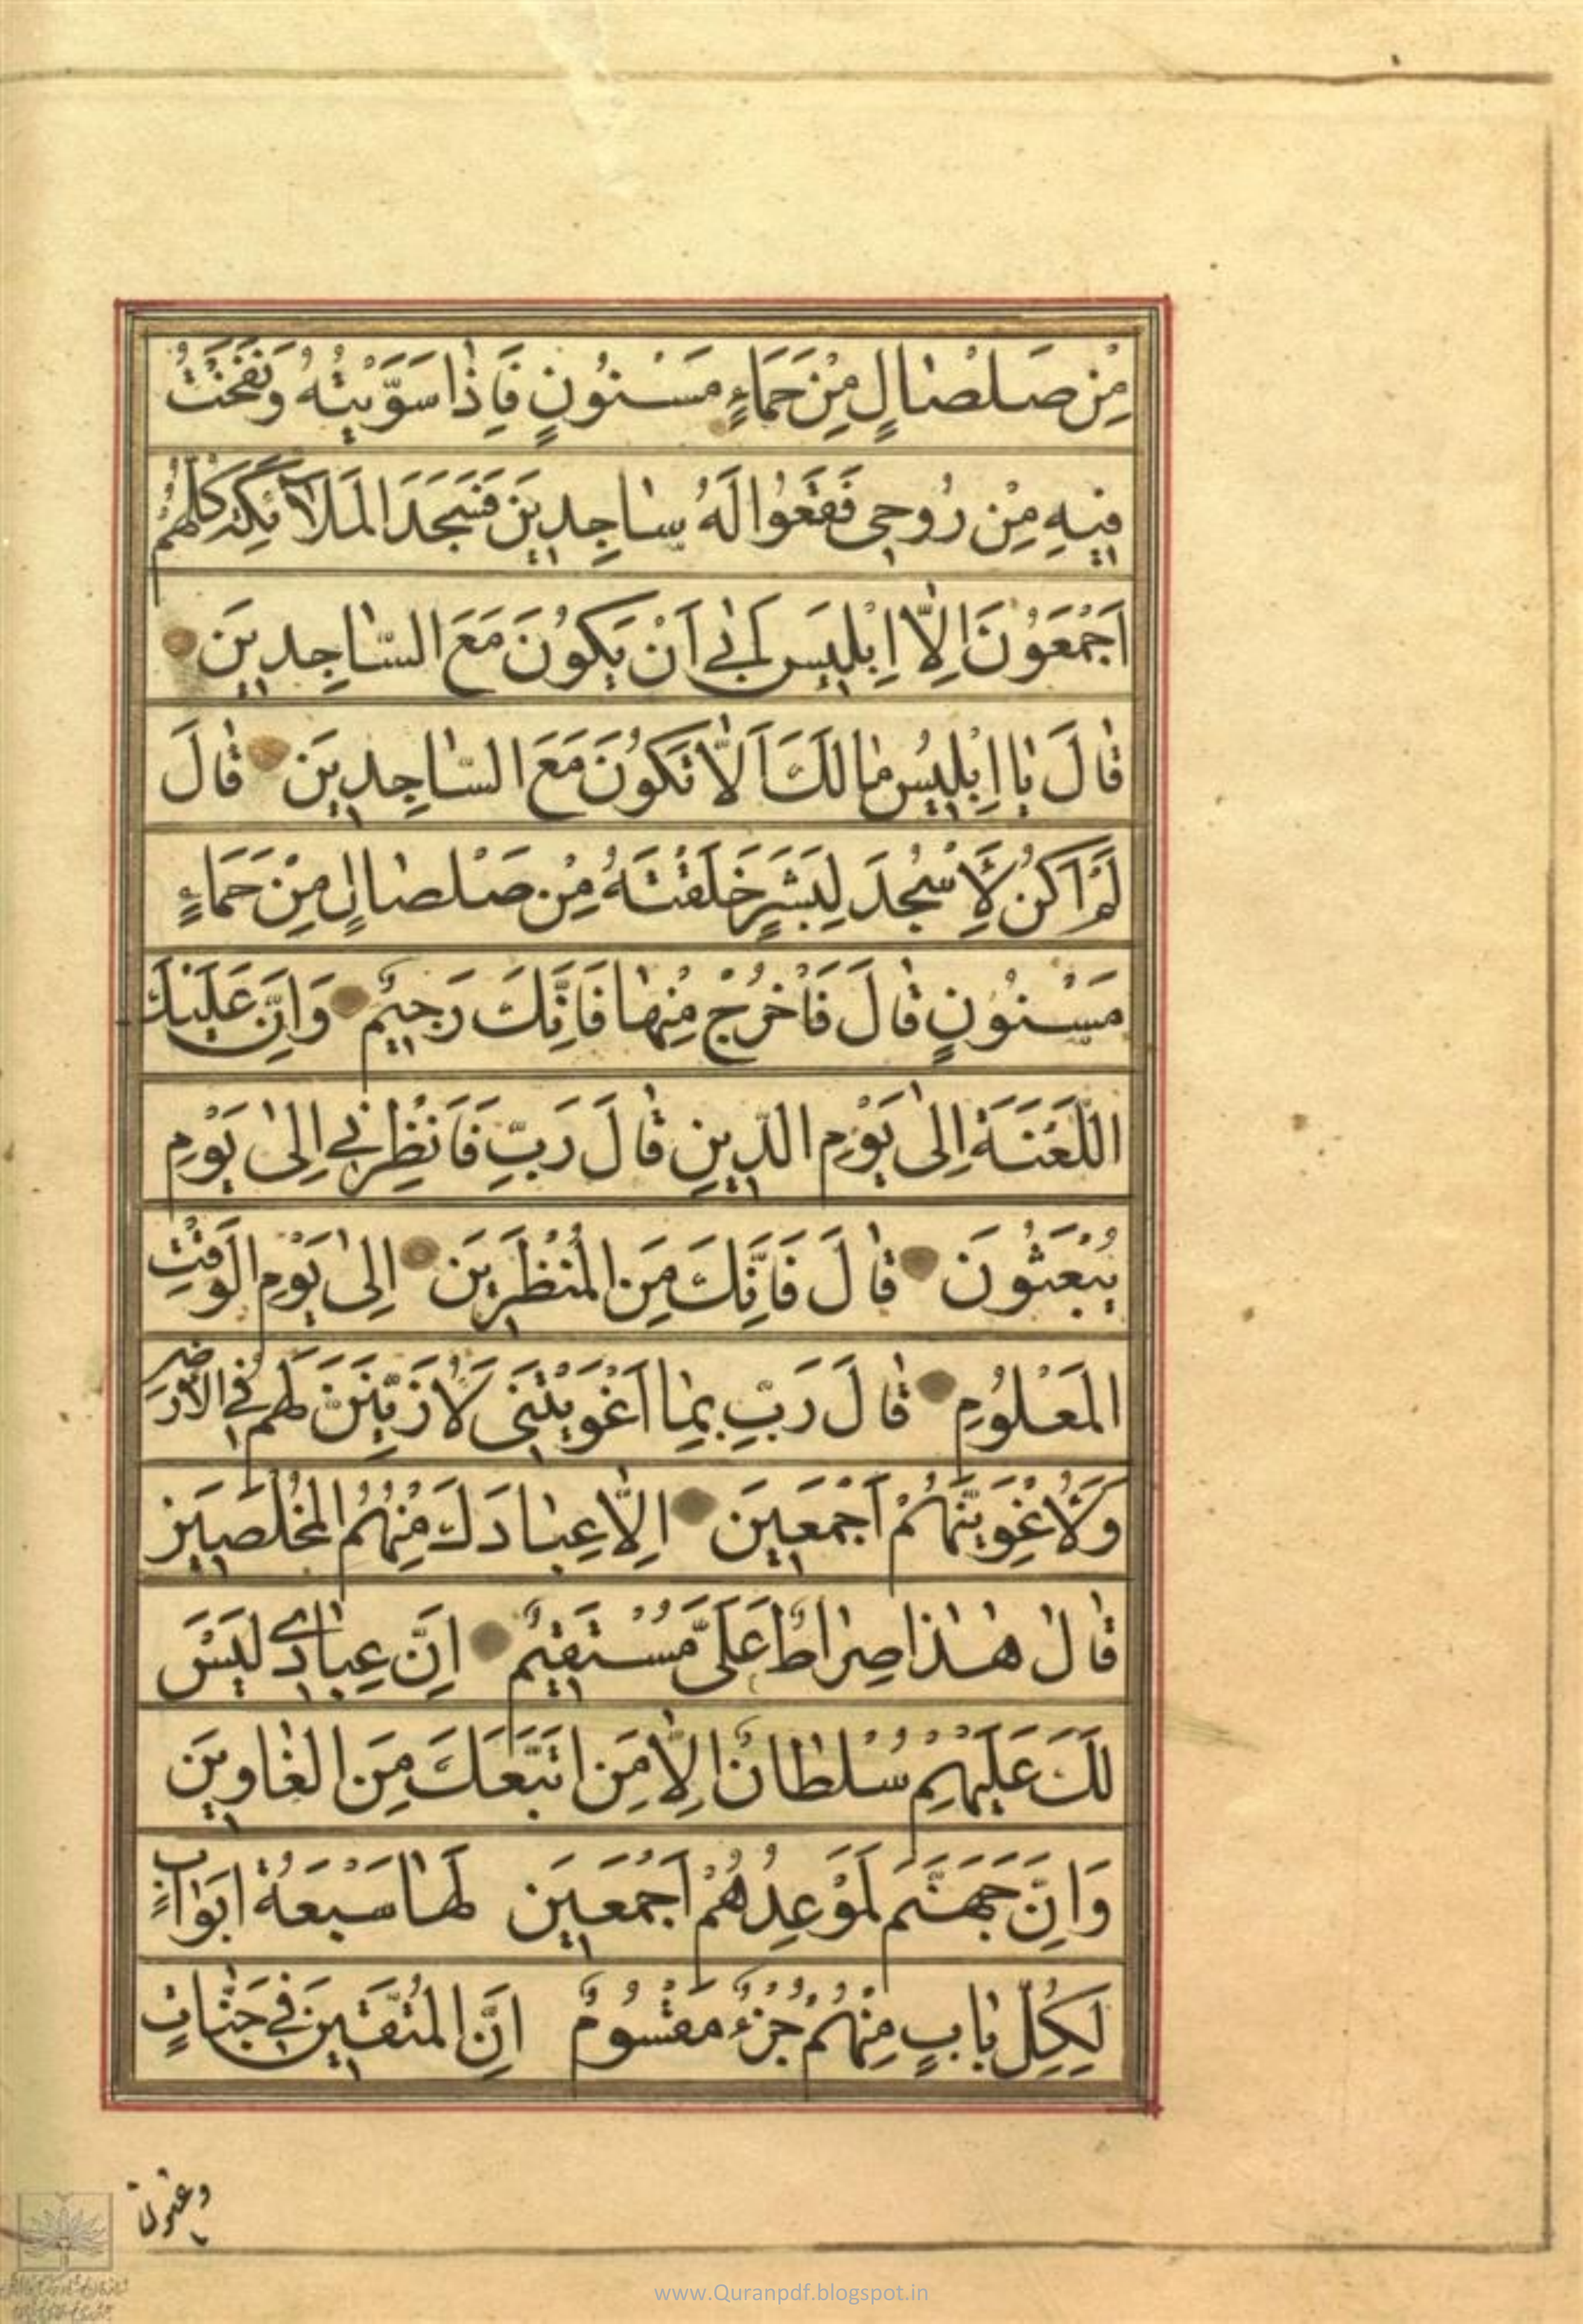 مِنْ صَلْصَالٍ مِنْ حَمَاءٍ مَسْنُونٍ فَاِذَا سَوَّيْتُهُ وَنَفَخْتُ
فِيهِ مِنْ رُوحِى فَقَعُوا لَهُ سَاجِدِينَ فَسَجَدَ الْمَلَآئِكَةُ كُلُّهُمْ
اَجْمَعُونَ اِلَّا اِبْلِيسَ اَبٰى اَنْ يَكُونَ مَعَ السَّاجِدِينَ
قَالَ يَا اِبْلِيسُ مَا لَكَ اَلَّا تَكُونَ مَعَ السَّاجِدِينَ قَالَ
لَمْ اَكُنْ لِاَسْجُدَ لِبَشَرٍ خَلَقْتَهُ مِنْ صَلْصَالٍ مِنْ حَمَاءٍ
مَسْنُونٍ قَالَ فَاخْرُجْ مِنْهَا فَاِنَّكَ رَجِيمٌ وَاِنَّ عَلَيْكَ
اللَّعْنَةَ اِلٰى يَوْمِ الدِّينِ قَالَ رَبِّ فَاَنْظِرْنِى اِلٰى يَوْمِ
يُبْعَثُونَ قَالَ فَاِنَّكَ مِنَ الْمُنْظَرِينَ اِلٰى يَوْمِ الْوَقْتِ
الْمَعْلُومِ قَالَ رَبِّ بِمَا اَغْوَيْتَنِى لَاُزَيِّنَنَّ لَهُمْ فِى الْاَرْضِ
وَلَاُغْوِيَنَّهُمْ اَجْمَعِينَ اِلَّا عِبَادَكَ مِنْهُمُ الْمُخْلَصِينَ
قَالَ هٰذَا صِرَاطٌ عَلَىَّ مُسْتَقِيمٌ اِنَّ عِبَادِى لَيْسَ
لَكَ عَلَيْهِمْ سُلْطَانٌ اِلَّا مَنِ اتَّبَعَكَ مِنَ الْغَاوِينَ
وَاِنَّ جَهَنَّمَ لَمَوْعِدُهُمْ اَجْمَعِينَ لَهَا سَبْعَةُ اَبْوَابٍ
لِكُلِّ بَابٍ مِنْهُمْ جُزْءٌ مَقْسُومٌ اِنَّ الْمُتَّقِينَ فِى جَنَّاتٍ
وعيون
www.Quranpdf.blogspot.in